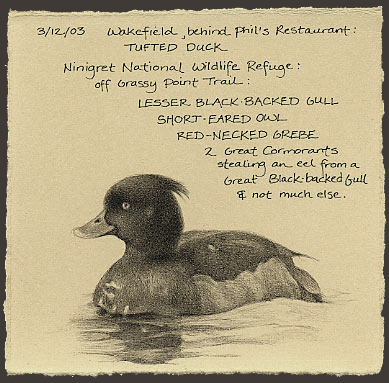 3/12/03 Wakefield, behind Phil's Restaurant:
TUFTED DUCK
Ninigret National Wildlife Refuge:
off Grassy Point Trail:
LESSER BLACK-BACKED GULL
SHORT-EARED OWL
RED-NECKED GREBE
2 Great Cormorants
stealing an eel from a
Great Black-backed Gull
& not much else.